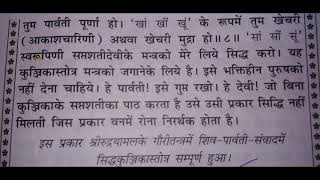 तुम पार्वती पूर्णा हो। 'खां खीं खूं' के रूपमें तुम खेचरी
(आकाशचारिणी) अथवा खेचरी मुद्रा हो॥८॥ 'सां सीं सूं'
स्वरूपिणी सप्तशतीदेवीके मन्त्रको मेरे लिये सिद्ध करो। यह
कुञ्जिकास्तोत्र मन्त्रको जगानेके लिये है। इसे भक्तिहीन पुरुषको
नहीं देना चाहिये। हे पार्वती! इसे गुप्त रखो। हे देवी! जो बिना
कुञ्जिकाके सप्तशतीका पाठ करता है उसे उसी प्रकार सिद्धि नहीं
मिलती जिस प्रकार वनमें रोना निरर्थक होता है।
इस प्रकार श्रीरुद्रयामलके गौरीतन्त्रमें शिव-पार्वती-संवादमें
सिद्धकुञ्जिकास्तोत्र सम्पूर्ण हुआ।